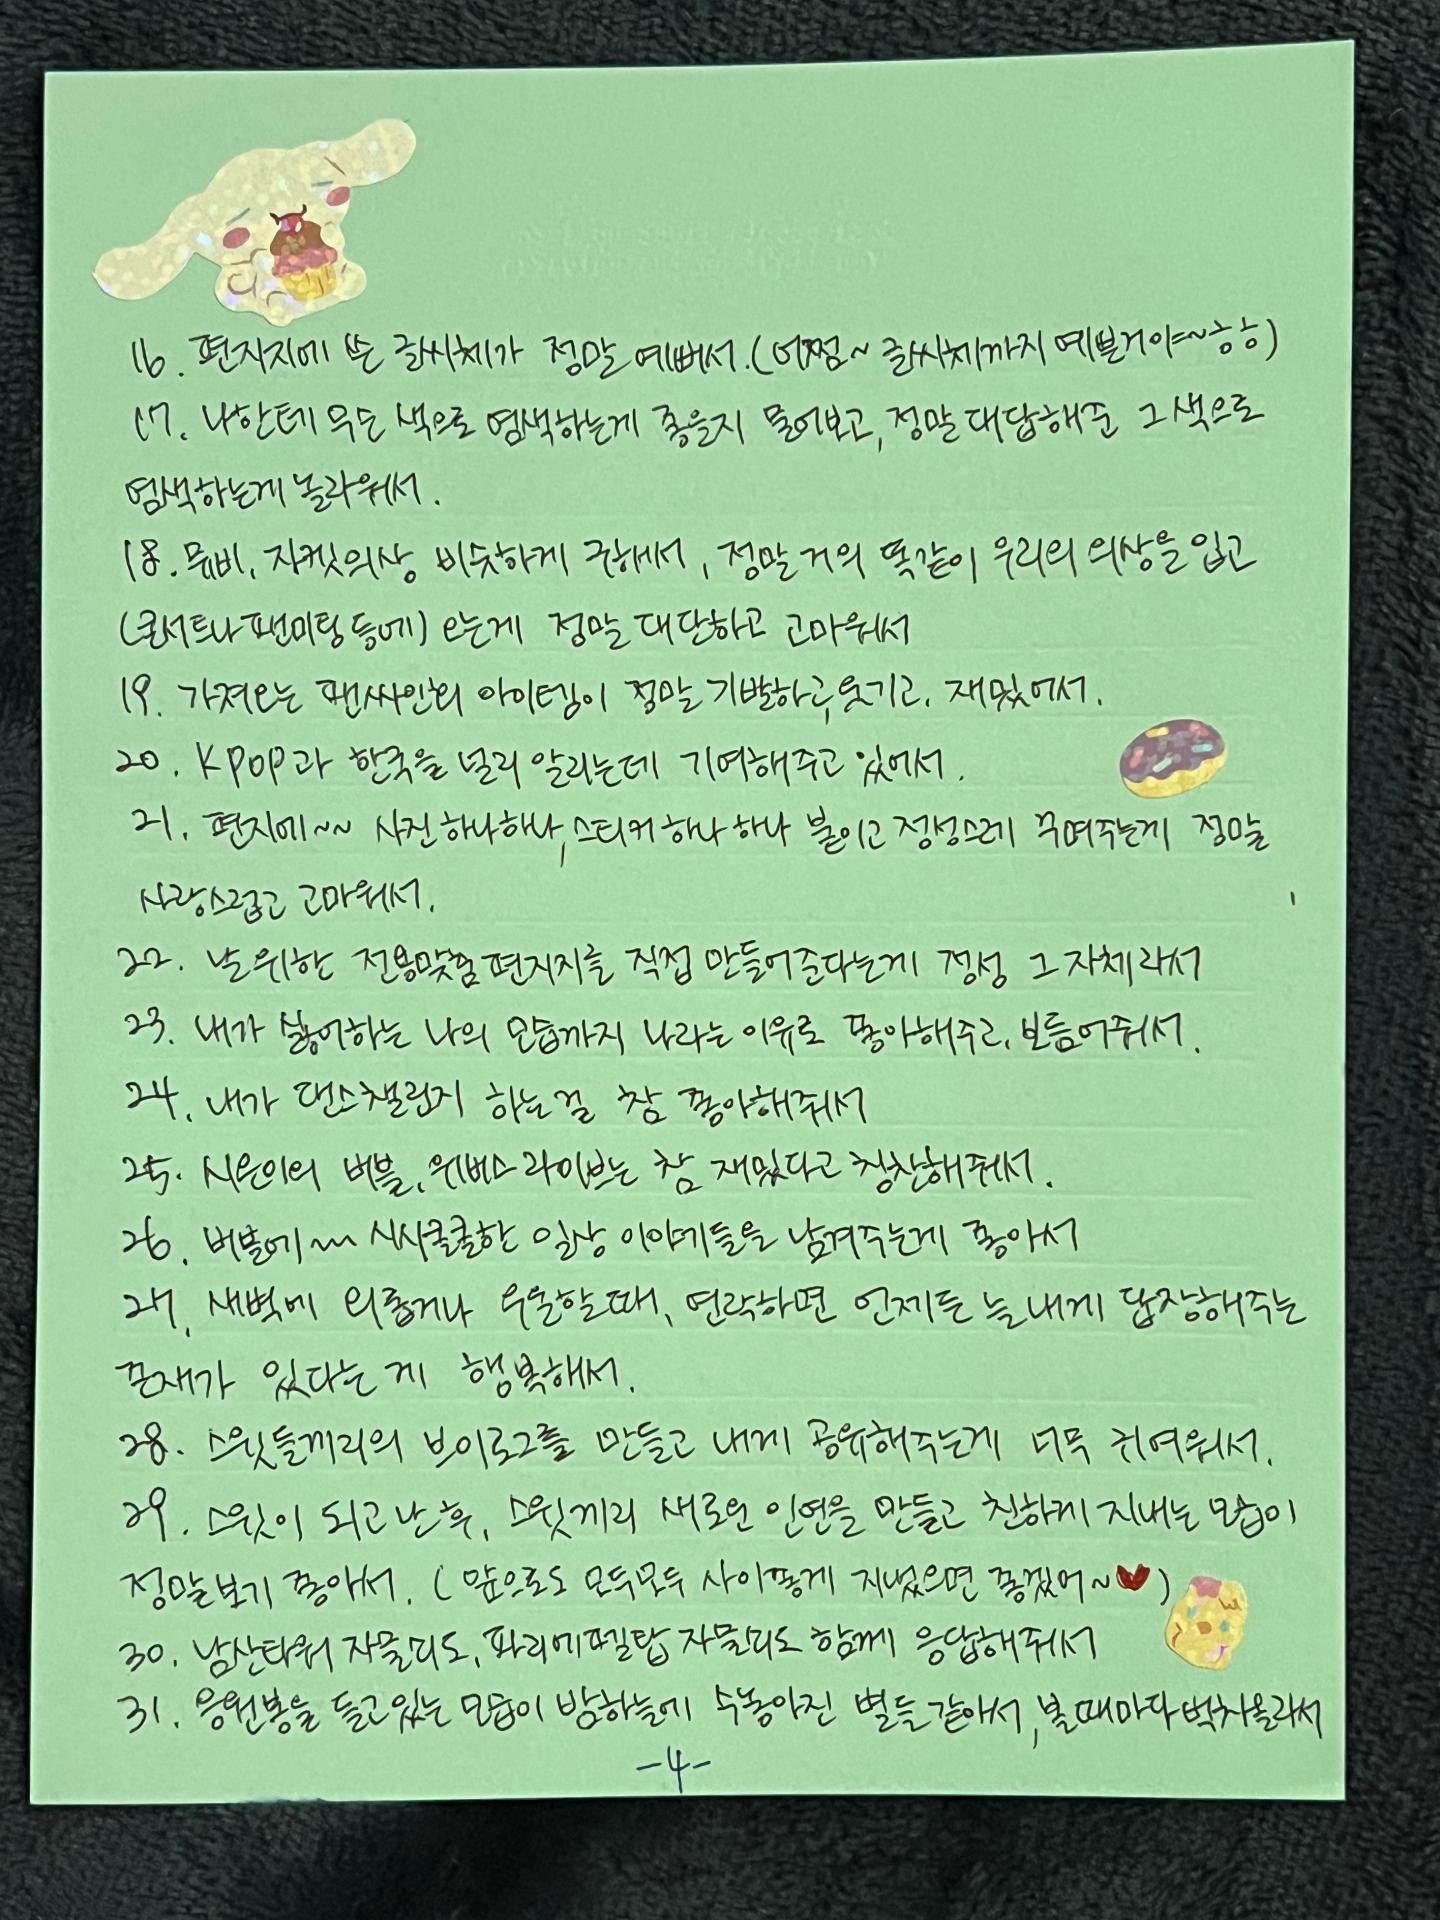 16. 편지지에 쓴 글씨체가 정말 예뻐서.(어쩜~ 글씨체까지 예쁜거야~ㅎㅎ)
17. 나한테 무슨 색으로 염색하는게 좋을지 물어보고, 정말 대답해준 그 색으로
염색하는게 놀라워서.
18. 뮤비, 자켓의상 비슷하게 구해서, 정말 거의 똑같이 우리의 의상을 입고
(콘서트나 팬미팅 등에) 오는게 정말 대단하고 고마워서
19. 가져오는 팬싸인회 아이템이 정말 기발하고, 웃기고, 재밌어서.
20. KPOP과 한국을 널리 알리는데 기여해주고 있어서.
21. 편지에~~ 사진하나하나, 스티커하나하나 붙이고 정성스레 꾸며주는게 정말
사랑스럽고 고마워서.
22. 날 위한 전용맞춤편지지를 직접 만들어준다는게 정성 그 자체라서
23. 내가 싫어하는 나의 모습까지 나라는 이유로 좋아해주고, 보듬어줘서.
24. 내가 댄스챌린지 하는걸 참 좋아해줘서
25. 시은이의 버블, 위버스라이브는 참 재밌다고 칭찬해줘서.
26. 버블에~~ 시시콜콜한 일상 이야기들을 남겨주는게 좋아서
27. 새벽에 외롭거나 우울할때, 연락하면 언제든 늘 내게 답장해주는
존재가 있다는 게 행복해서.
28. 스윗들끼리의 브이로그를 만들고 내게 공유해주는게 너무 귀여워서.
29. 스윗이 되고 난 후, 스윗끼리 새로운 인연을 만들고 친하게 지내는 모습이
정말보기 좋아서. (앞으로도 모두모두 사이좋게 지냈으면 좋겠어~♥)
30. 남산타워 자물쇠도, 파리에펠탑 자물쇠도 함께 응답해줘서
31. 응원봉을 들고있는 모습이 밤하늘에 수놓아진 별들 같아서, 볼때마다 벅차올라서
-4-